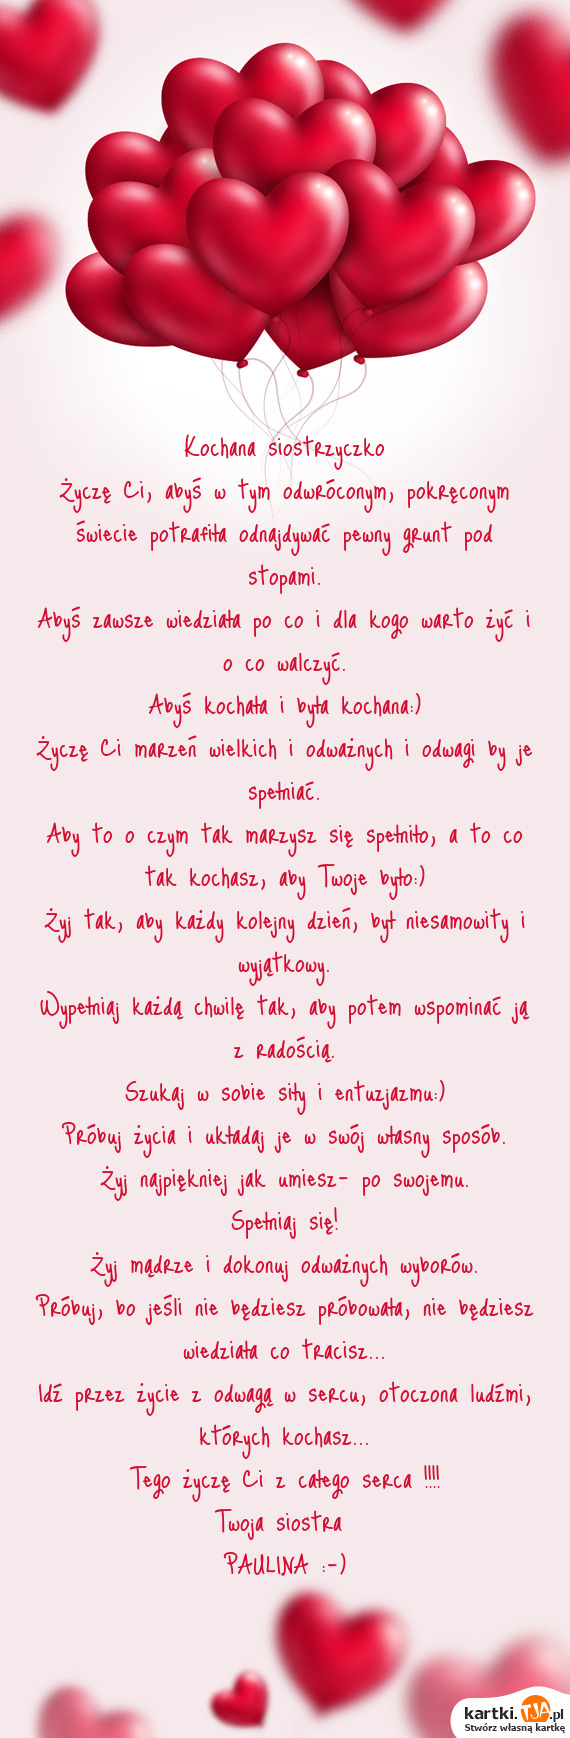 Kochana siostrzyczko
Życzę Ci, abyś w tym odwróconym, pokręconym
świecie potrafiła odnajdywać pewny grunt pod
stopami.
Abyś zawsze wiedziała po co i dla kogo warto żyć i
o co walczyć.
Abyś kochała i była kochana:)
Życzę Ci marzeń wielkich i odważnych i odwagi by je
spełniać.
Aby to o czym tak marzysz się spełniło, a to co
tak kochasz, aby Twoje było:)
Żyj tak, aby każdy kolejny dzień, był niesamowity i
wyjątkowy.
Wypełniaj każdą chwilę tak, aby potem wspominać ją
z radością.
Szukaj w sobie siły i entuzjazmu:)
Próbuj życia i układaj je w swój własny sposób.
Żyj najpiękniej jak umiesz- po swojemu.
Spełniaj się!
Żyj mądrze i dokonuj odważnych wyborów.
Próbuj, bo jeśli nie będziesz próbowała, nie będziesz
wiedziała co tracisz...
Idź przez życie z odwagą w sercu, otoczona ludźmi,
których kochasz...
Tego życzę Ci z całego serca !!!!
Twoja siostra
PAULINA :-)
kartki.TJA.pl
Stwórz własną kartkę